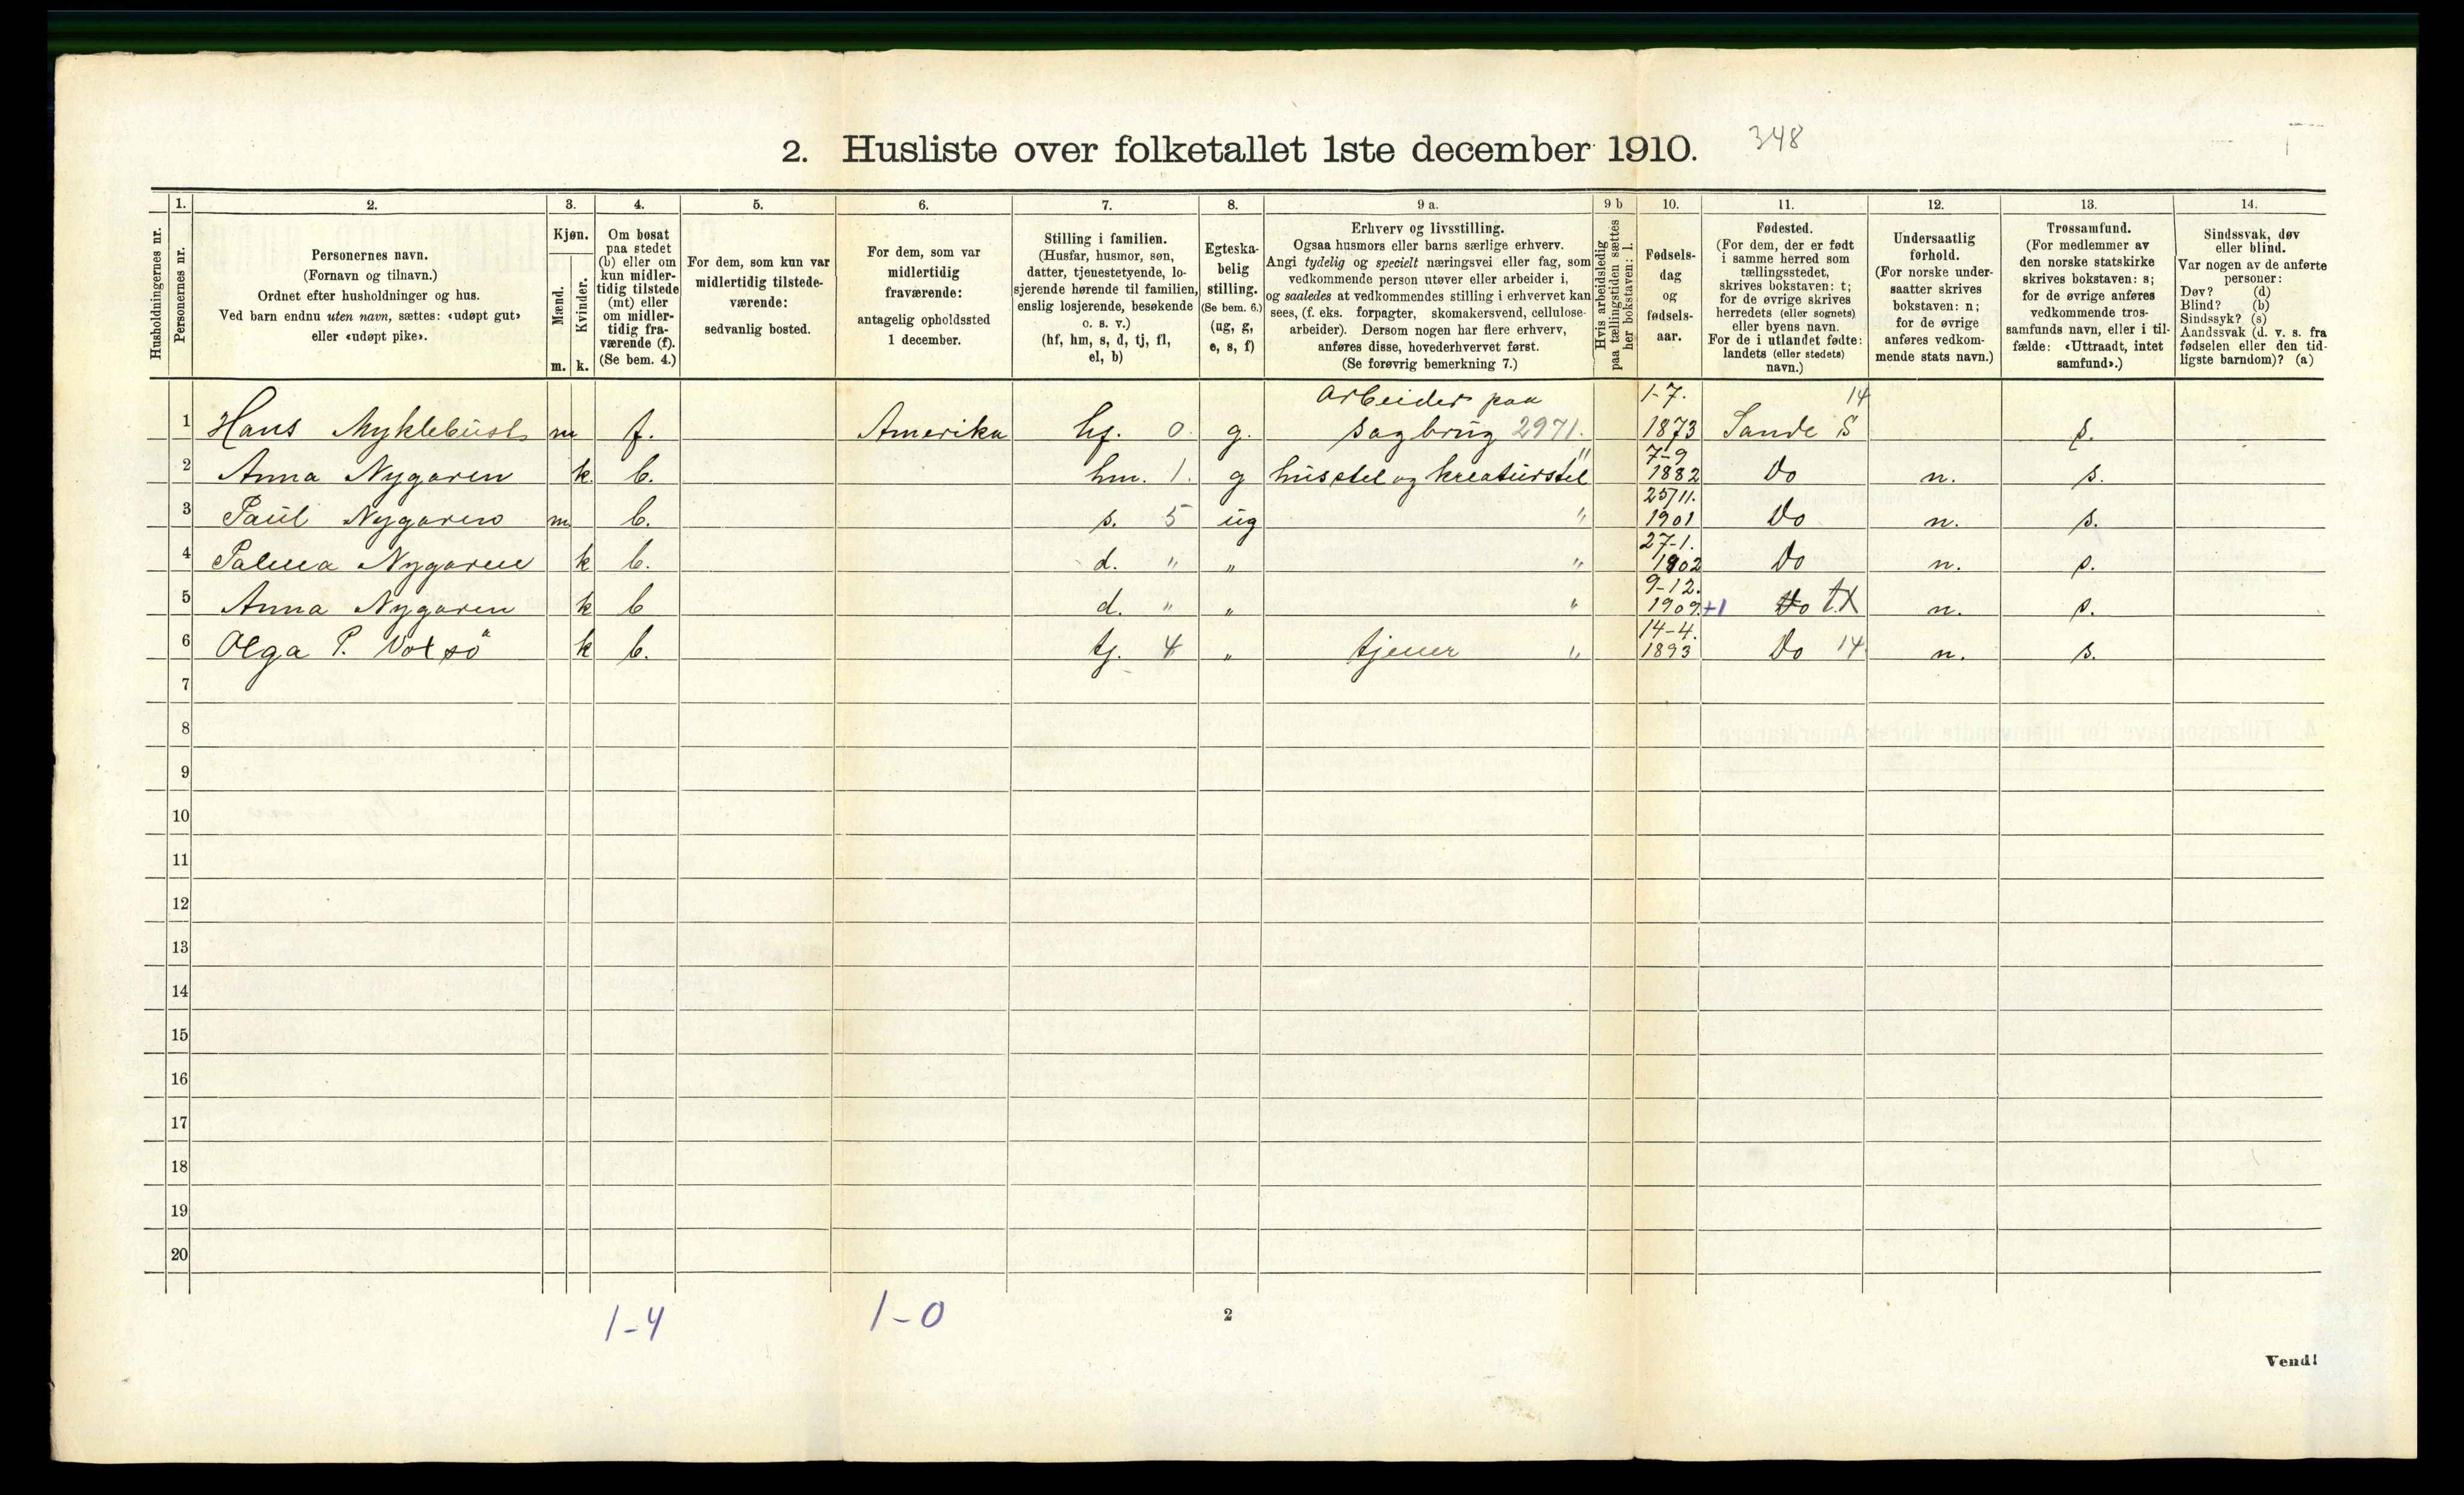 2. Husliste over folketallet 1ste december 1910. 348
Husholdningernes nr.
1.
Personernes nr.
2.
Personernes navn.
(Fornavn og tilnavn.)
Ordnet efter husholdninger og hus.
Ved barn endnu uten navn, sættes: «udøpt gut»
eller «udøpt pike».
3.
Kjøn.
Mænd.
Kvinder.
m. k.
4.
Om bosat
paa stedet
(b) eller om
kun midler-
tidig tilstede
(mt) eller
om midler-
tidig fra-
værende (f).
(Se bem. 4.)
5.
For dem, som kun var
midlertidig tilstede-
værende:
sedvanlig bosted.
6.
For dem, som var
midlertidig
fraværende:
antagelig opholdssted
1 december.
7.
Stilling i familien.
(Husfar, husmor, søn,
datter, tjenestetyende, lo-
sjerende hørende til familien,
enslig losjerende, besøkende
o. s. v.)
(hf, hm, s, d, tj, fl,
el, b)
8.
Egteska-
belig
stilling.
(Se bem. 6.)
(ug, g,
e, s, f)
9 a.
Erhverv og livsstilling.
Ogsaa husmors eller barns særlige erhverv.
Angi tydelig og specielt næringsvei eller fag, som
vedkommende person utøver eller arbeider i,
og saaledes at vedkommendes stilling i erhvervet kan
sees, (f. eks. forpagter, skomakersvend, cellulose-
arbeider). Dersom nogen har flere erhverv,
anføres disse, hovederhvervet først.
(Se forøvrig bemerkning 7.)
9 b
Hvis arbeidsledig
paa tællingstiden sættes
her bokstaven: l.
10.
Fødsels-
dag
og
fødsels-
aar.
11.
Fødested.
(For dem, der er født
i samme herred som
tællingsstedet,
skrives bokstaven: t;
for de øvrige skrives
herredets (eller sognets)
eller byens navn.
For de i utlandet fødte:
landets (eller stedets)
navn.)
12.
Undersaatlig
forhold.
(For norske under-
saatter skrives
bokstaven: n;
for de øvrige
anføres vedkom-
mende stats navn.)
13.
Trossamfund.
(For medlemmer av
den norske statskirke
skrives bokstaven: s;
for de øvrige anføres
vedkommende tros-
samfunds navn, eller i til-
fælde: «Uttraadt, intet
samfund».)
14.
Sindssvak, døv
eller blind.
Var nogen av de anførte
personer:
Døv? (d)
Blind? (b)
Sindssyk? (s)
Aandssvak (d. v. s. fra
fødselen eller den tid-
ligste barndom)? (a)
arbeider paa 1-7. 14
1 Hans Myklebust m f. Amerika hf. 0 g. sagbrug 2971. 1873 Sande S s.
7-9
2 Anna Nygaren k. b. hm. 1. g husstel og kreaturstel " 1882 Do n. s.
25/11.
3 Paul Nygaren m. b. s. 5 ug " 1901 Do n. s.
27-1.
4 Palma Nygaren k b. d. " " " 1902 Do n. s.
9-12.
5 Anna Nygaren k b d. " " " 1909. +1 Do tX n. s.
14-4.
6 Olga P. Volsö k b. tj. 4 " tjener " 1893 Do 14 n. s.
7
8
9
10
11
12
13
14
15
16
17
18
19
20
1-4 1-0 2
Vend!